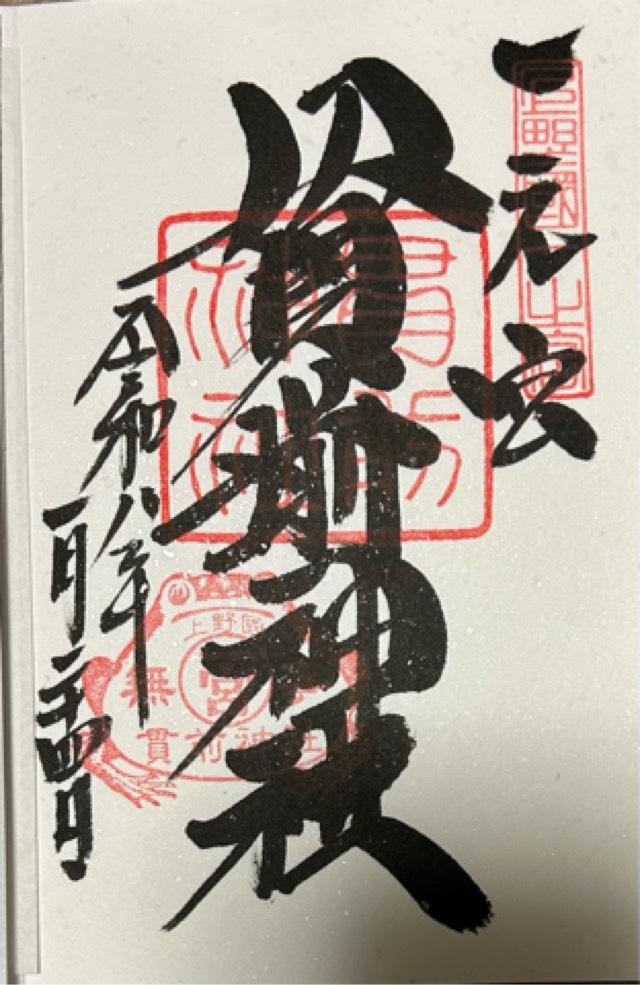 上野國一之宮
一之宮
貫前神社
貫前神社
令和八年
一月二十四日
上野國
無
宮
貫前神社